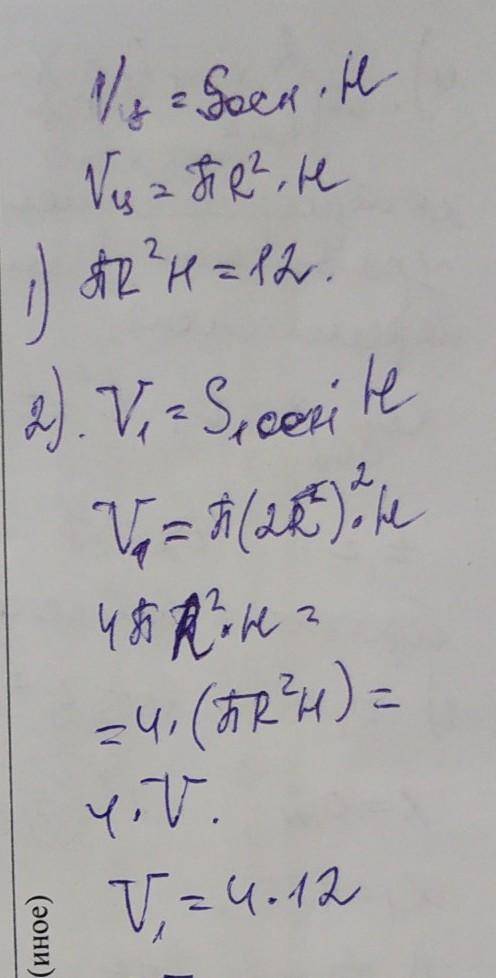 Vц = Sосн · H
Vц = πR² · H
1) πR²H = 12.
2). V₁ = S₁осн · H
V₁ = π(2R²)² · H
4πR² · H =
= 4 · (πR²H) =
4 · V.
V₁ = 4 · 12
(иное)